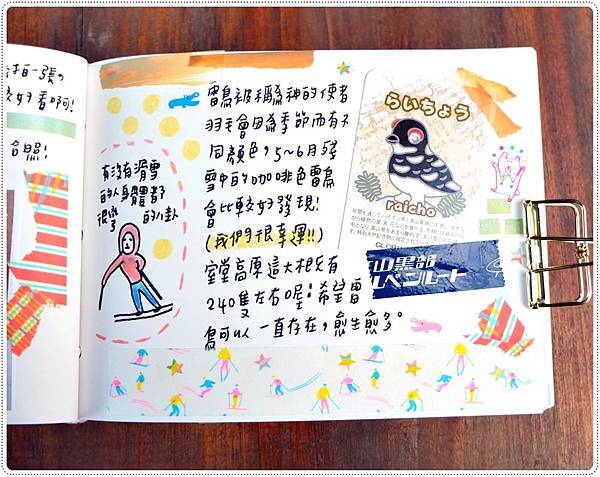 拍一張。
較好看啊!
合照!
有沒有滑雪
的人身體都
很微
的八卦
雷鳥被稱為神的使者
羽毛會因為季節而有不
同顏色,5~6月殘
雪中的咖啡色雷鳥
會比較好發現!
(我們很幸運!!)
室堂高原這大概只有
240隻左右喔!希望雷
鳥可以一直存在,愈生愈多。
らいちょう
raicho
山黒部
ルペンルート